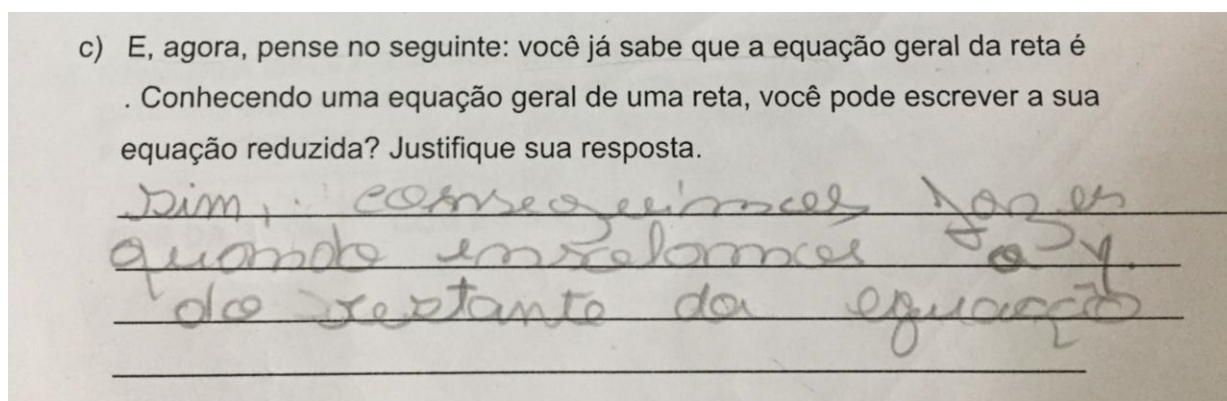 c) E, agora, pense no seguinte: você já sabe que a equação geral da reta é
. Conhecendo uma equação geral de uma reta, você pode escrever a sua
equação reduzida? Justifique sua resposta.
Sim, conseguimos fazer
quando insolamos o y
do restante da equação